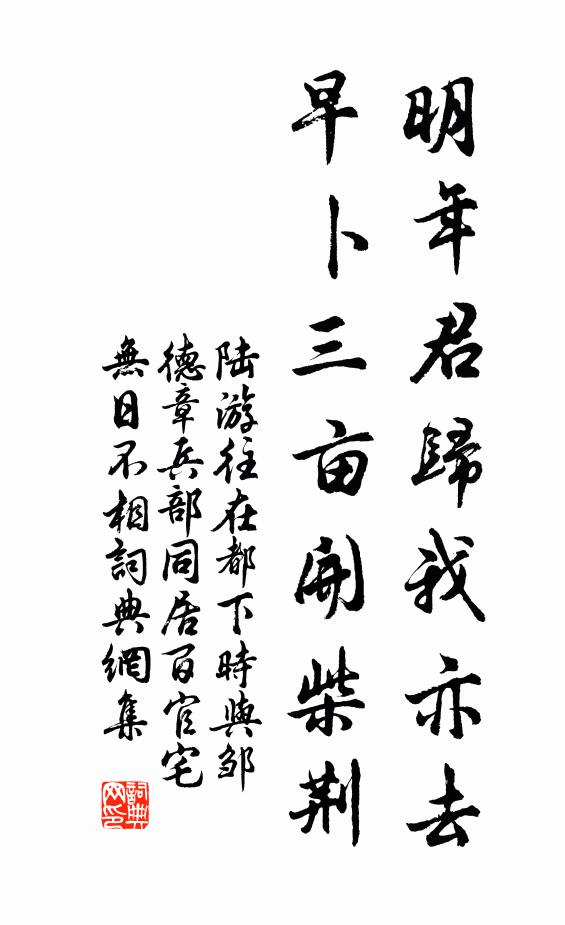 明年君歸我亦去
早卜三亩開柴荆
陆游往在都下時與邹
德章兵部同居百官宅
無日不相詞典網集
詞典
网印